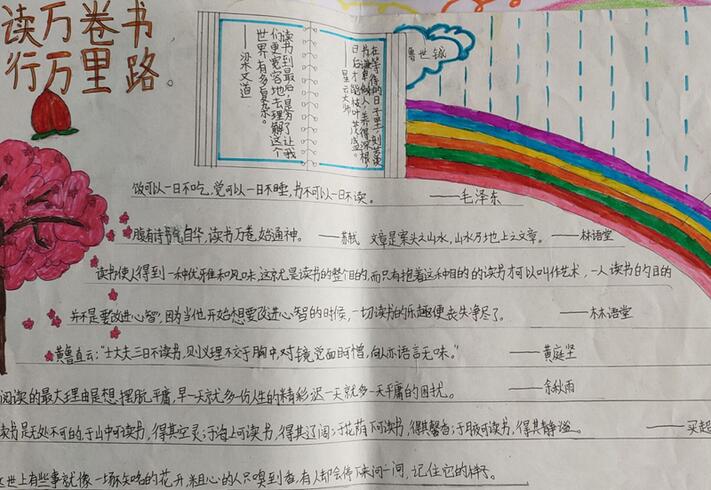 读万卷书
行万里路。
读书到最后，是为了让我
们更宽容地去理解这个
世界有多复杂。
——梁文道
在等待的日子里，刻苦读
书，谦卑做人，养得深根
日后才能枝叶茂盛。
——星云大师
曾世钺
饭可以一日不吃，觉可以一日不睡，书不可以一日不读。 ——毛泽东
腹有诗书气自华，读书万卷始通神。 ——苏轼 文章是案头之山水，山水乃地上之文章。 ——林语堂
读书使人得到一种优雅和风味，这就是读书的整个目的，而只有抱着这种目的的读书才可以叫作艺术，一人读书的目的
并不是要改进心智，因为当他开始想要改进心智的时候，一切读书的乐趣便丧失净尽了。 ——林语堂
黄鲁直云："士大夫三日不读书，则义理不交于胸中，对镜觉面目可憎，向人亦语言无味。" ——黄庭坚
阅读的最大理由是想摆脱平庸，早一天就多一份人生的精彩，迟一天就多一天平庸的困扰。 ——余秋雨
读书是无处不可的，于山中可读书，得其空灵；于海上可读书，得其辽阔；于花荫下可读书，得其馨香；于月夜可读书，得其静谧。
这世上有些事就像一场灰暗的花开，粗心的人只嗅到香，有人却会停下来问一问，记住它的样子。